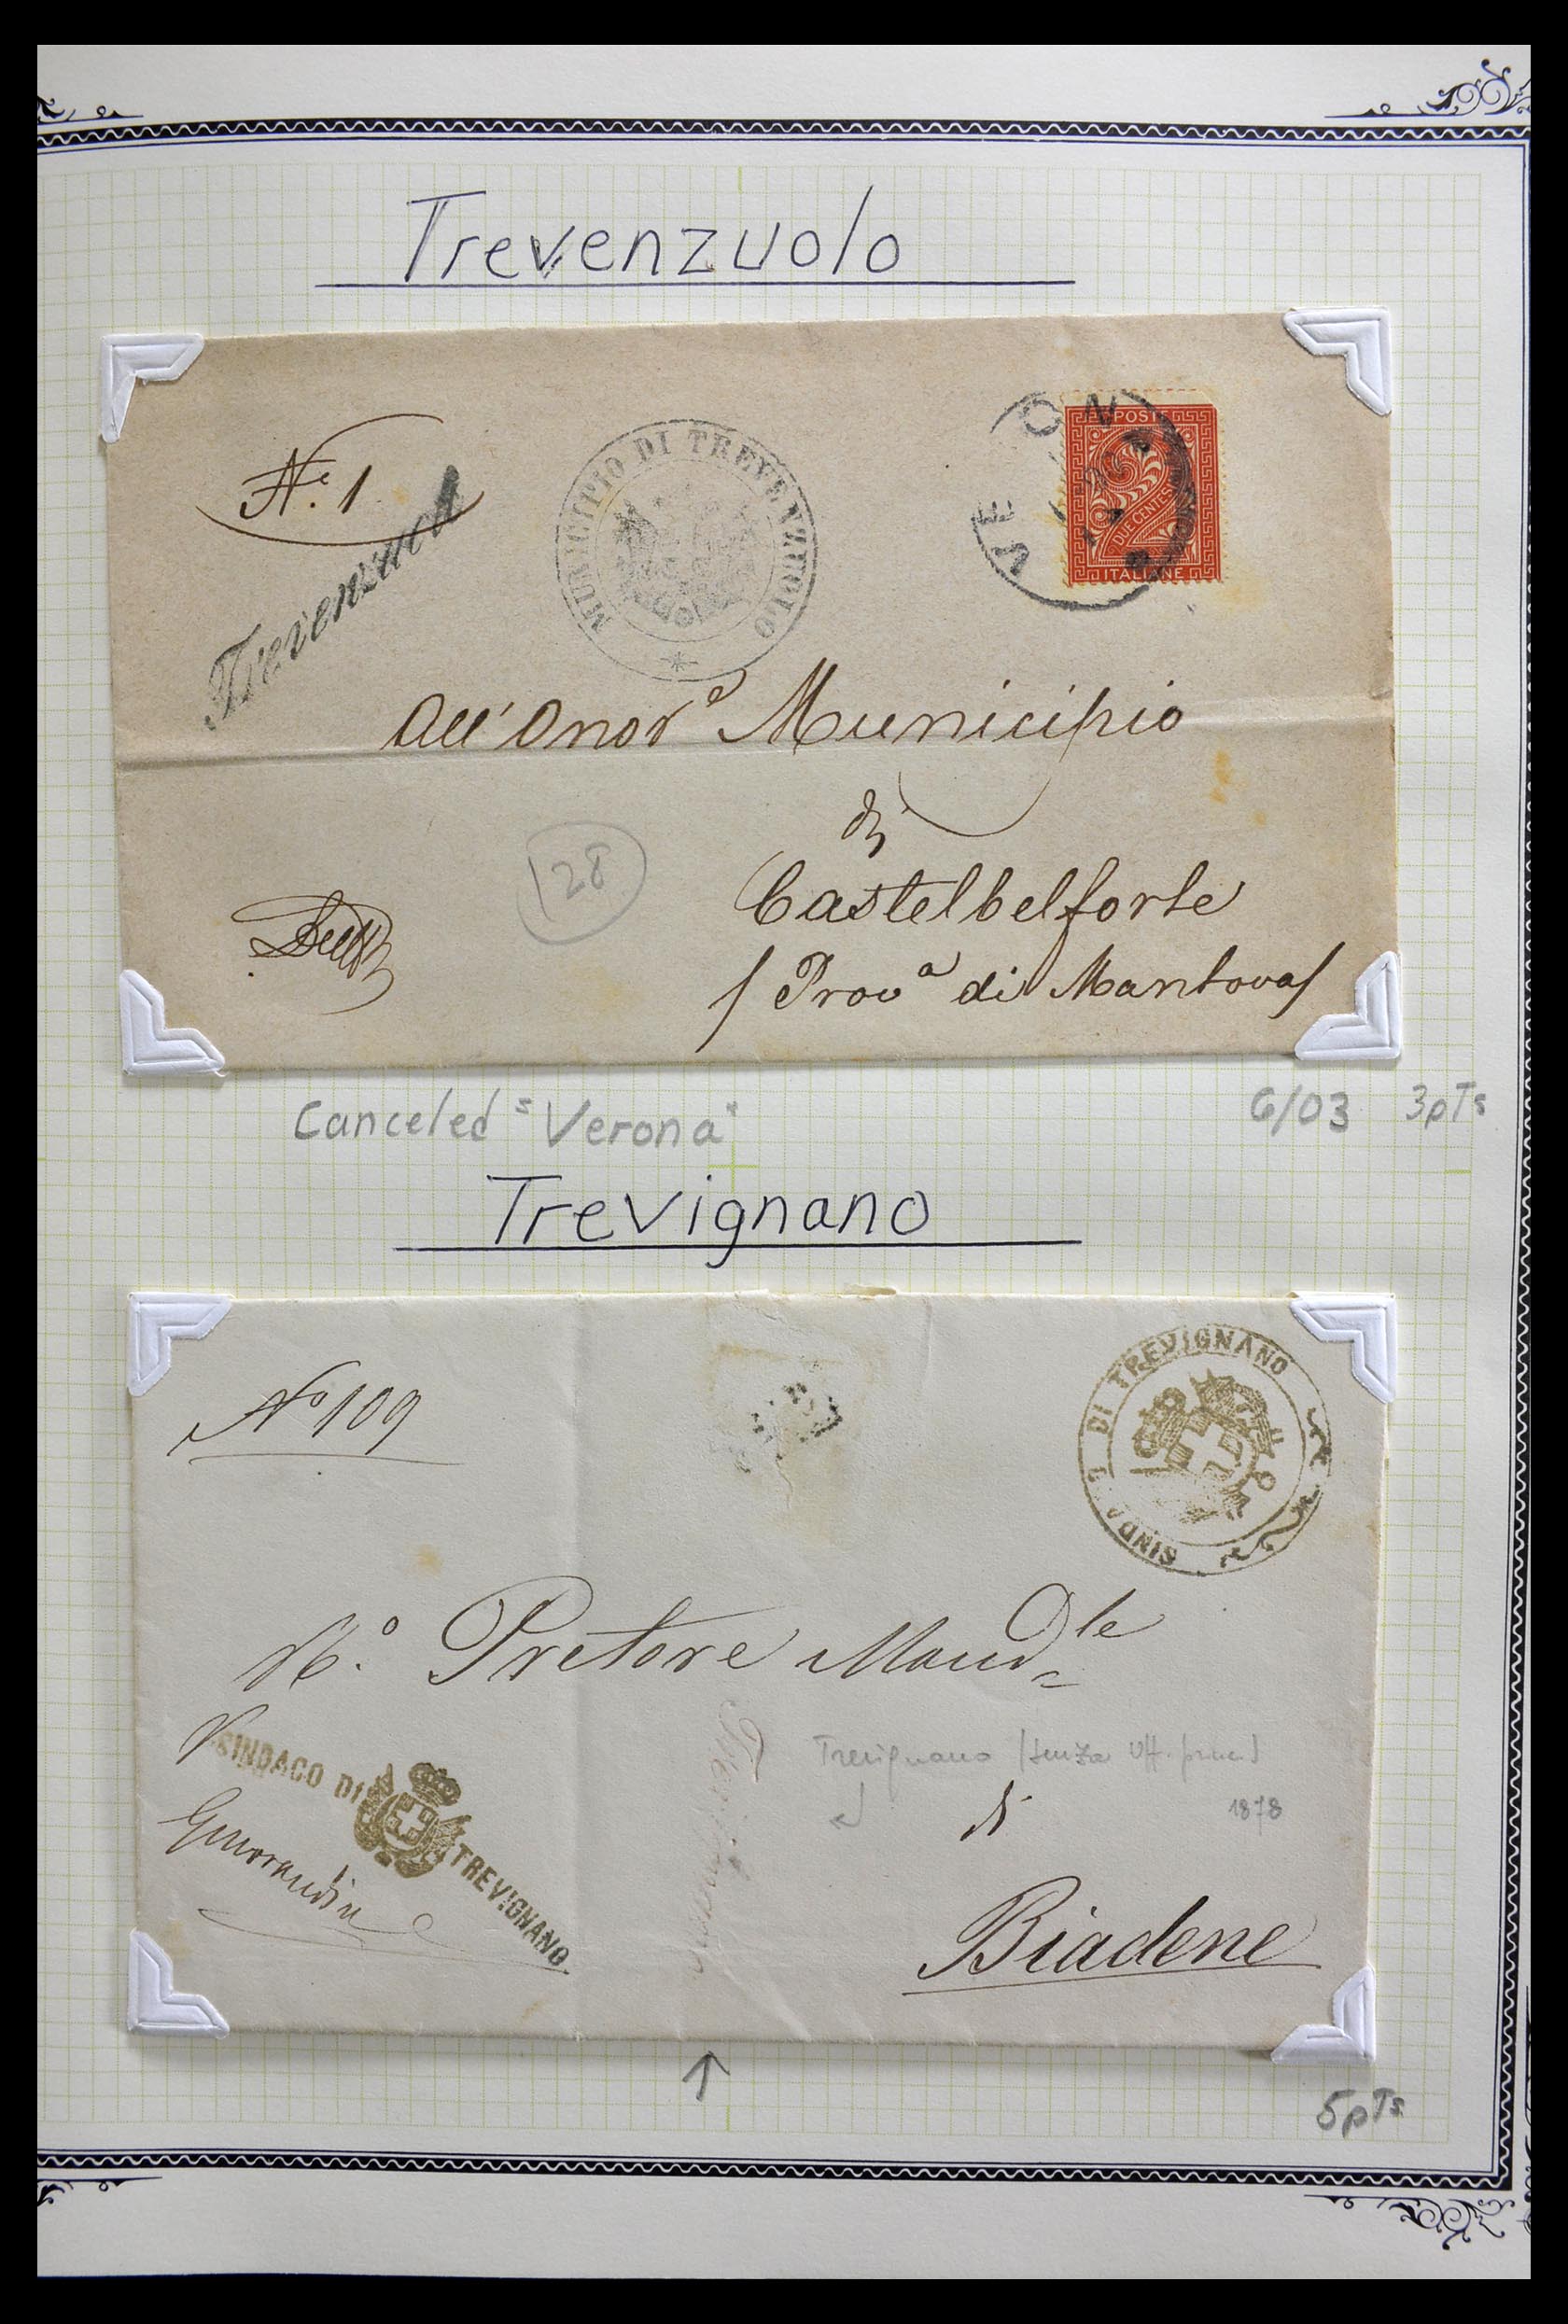 Trevenzuolo
N.º 1
MUNICIPIO DI TREVENZUOLO
VERON
POSTE
DUE CENTES
ITALIANE
All' Onor.e Municipio
di
128
Castelbelforte
/ Prov.a di Mantova /
Canceled "Verona"
6/03 3pTs
Trevignano
Nº 109
SIND DI TREVIGNANO
Rº. Pretore Mand.le
SINDACO DI TREVIGNANO.
Trevignano
Trevignano (senza Uff.
1878
di
Biadene
5pTs